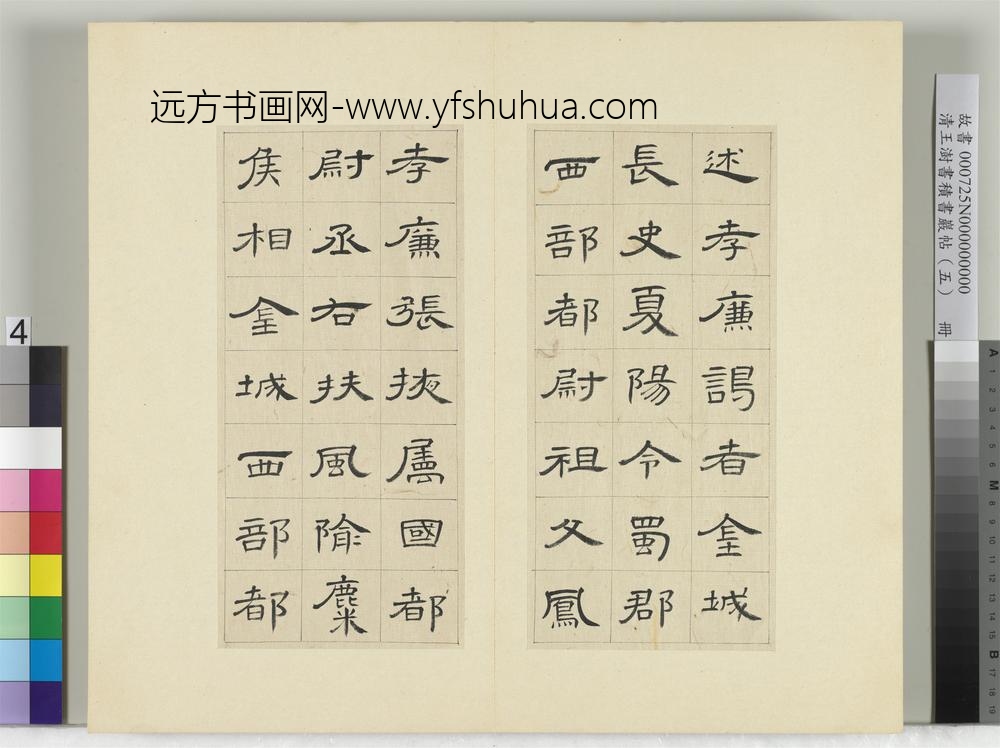 远方书画网-www.yfshuhua.com
述孝廉謁者金城
長史夏陽令蜀郡
西部都尉祖父鳳
孝廉張掖屬國都
尉丞右扶風隃麋
侯相金城西部都
故書 000725N000000000
清王澍書積書巖帖（五） 冊
4
A 1 2 3 4 5 6 M 8 9 10 11 12 13 14 15 B 17 18 19